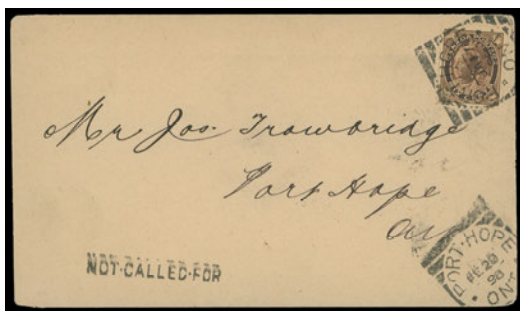 Mr Jos. Trowbridge
Port Hope
NOT·CALLED·FOR
PORT·HOPE
ONT